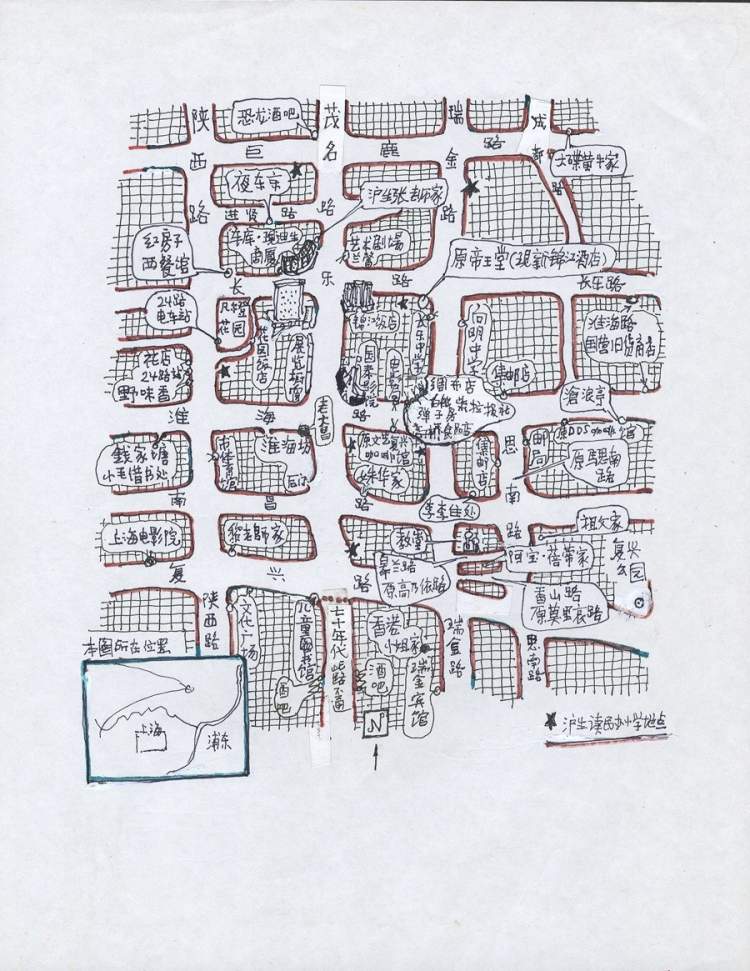 陕西路
巨鹿路
茂名路
瑞金路
成都路
恐龙酒吧
大碟黄牛家
夜东京
进贤路
沪生张老师家
艺术剧场
兰馨
原帝王堂(现新锦江酒店)
红房子
西餐馆
长乐路
长乐路
24路
电车站
凡橙
花园
花园饭店
锦江饭店
国泰影院
长乐中学
向明中学
集邮店
淮海路
国营旧货商店
绸布店
弹子房
沧浪亭
花店
24路站
野味香
淮海路
老大昌
钱家塘
小毛借书处
市体育馆
淮海坊
原文艺复兴
咖啡馆
姝华家
集邮店
思南路
邮局
原马思南
路
李李住处
南昌路
祖父家
上海电影院
教堂
皋兰路
原高乃依路
阿宝·蓓蒂家
复兴公园
香山路
原莫里哀路
复兴路
陕西路
文化广场
儿童图书馆
酒吧
七十年代此路不通
香港
小姐家
酒吧
瑞金宾馆
瑞金路
思南路
本图所在位置
上海
浦东
N
沪生读民办小学地点